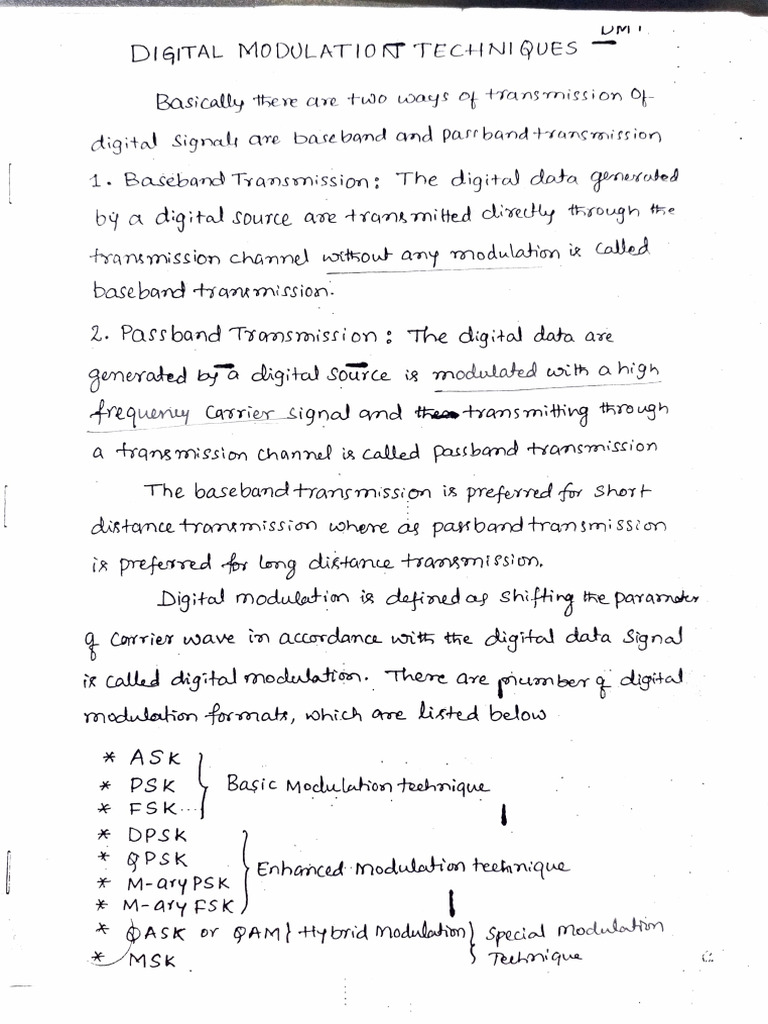 DM 1
DIGITAL MODULATION TECHNIQUES
Basically there are two ways of transmission of
digital signals are baseband and passband transmission
1. Baseband Transmission: The digital data generated
by a digital source are transmitted directly through the
transmission channel without any modulation is called
baseband transmission.
2. Passband Transmission: The digital data are
generated by a digital source is modulated with a high
frequency carrier signal and transmitting through
a transmission channel is called passband transmission
The baseband transmission is preferred for short
distance transmission where as passband transmission
is preferred for long distance transmission.
Digital modulation is defined as shifting the parameter
of carrier wave in accordance with the digital data signal
is called digital modulation. There are number of digital
modulation formats, which are listed below
* ASK
* PSK } Basic Modulation technique
* FSK
* DPSK
* QPSK } Enhanced modulation technique
* M-ary PSK
* M-ary FSK
* QASK or QAM } Hybrid Modulation } Special Modulation
* MSK Technique